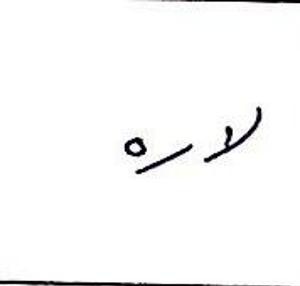 لاره